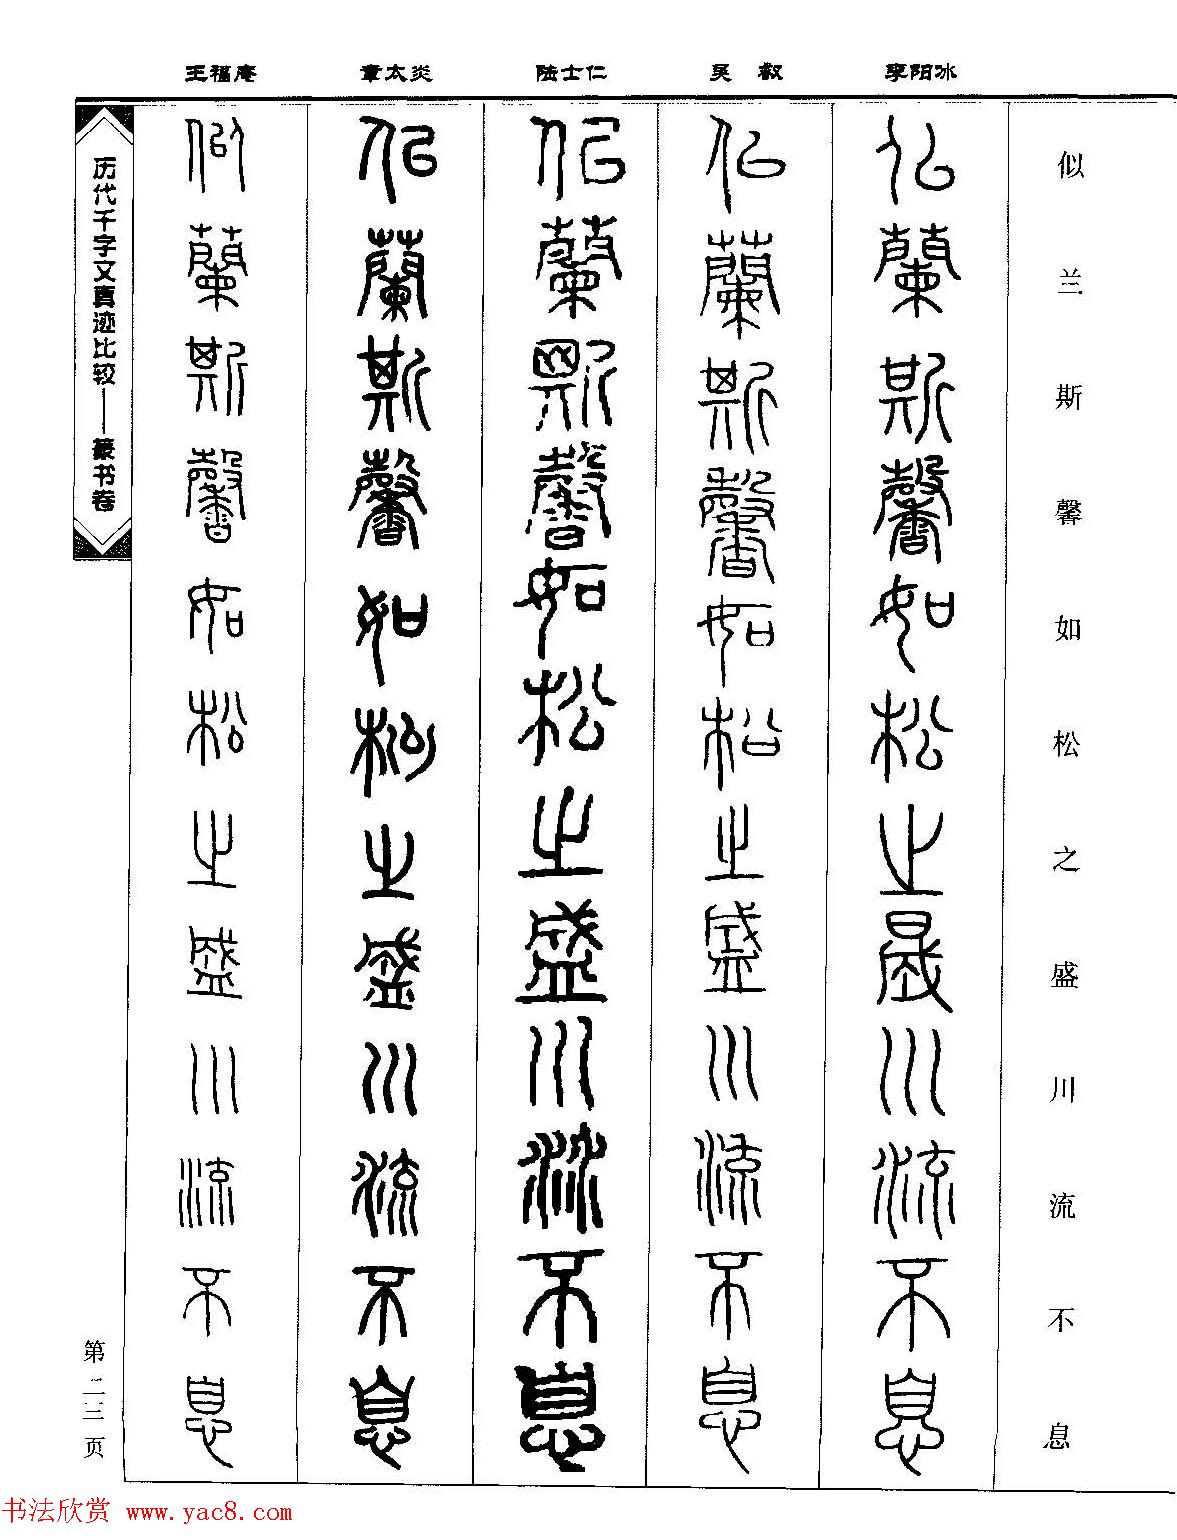 李阳冰
吴叡
陆士仁
章太炎
王福庵
似兰斯馨如松之盛川流不息
似兰斯馨如松之盛川流不息
似兰斯馨如松之盛川流不息
似兰斯馨如松之盛川流不息
似兰斯馨如松之盛川流不息
似兰斯馨如松之盛川流不息
历代千字文真迹比较——篆书卷
第二三页
书法欣赏 www.yac8.com